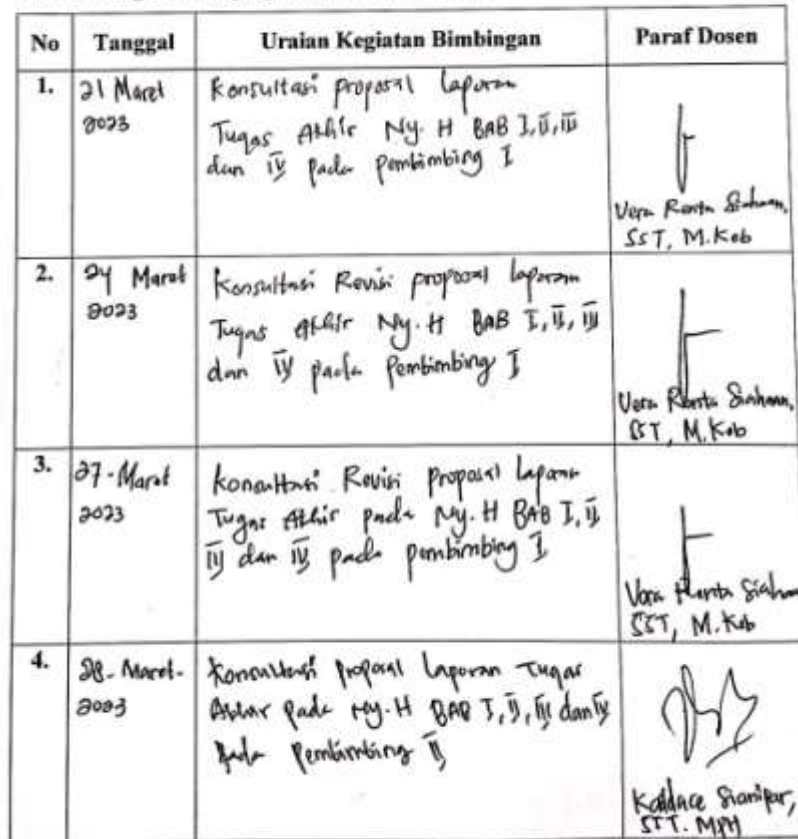 No Tanggal Uraian Kegiatan Bimbingan Paraf Dosen
1. 21 Maret 2023
Konsultasi proposal laporan
Tugas Akhir Ny. H BAB I, II, III
dan IV pada pembimbing I
Vera Renta Siahaan,
SST, M.Keb
2. 24 Maret 2023
Konsultasi Revisi proposal laporan
Tugas Akhir Ny. H BAB I, II, III
dan IV pada Pembimbing I
Vera Renta Siahaan,
SST, M.Keb
3. 27-Maret 2023
Konsultasi Revisi proposal laporan
Tugas Akhir pada Ny. H BAB I, II
III dan IV pada pembimbing I
Vera Renta Siahaan
SST, M.Keb
4. 28-Maret-2023
Konsultasi proposal laporan Tugas
Akhir pada Ny. H BAB I, II, III dan IV
pada Pembimbing II
Kandace Sianipar,
SST. MPH